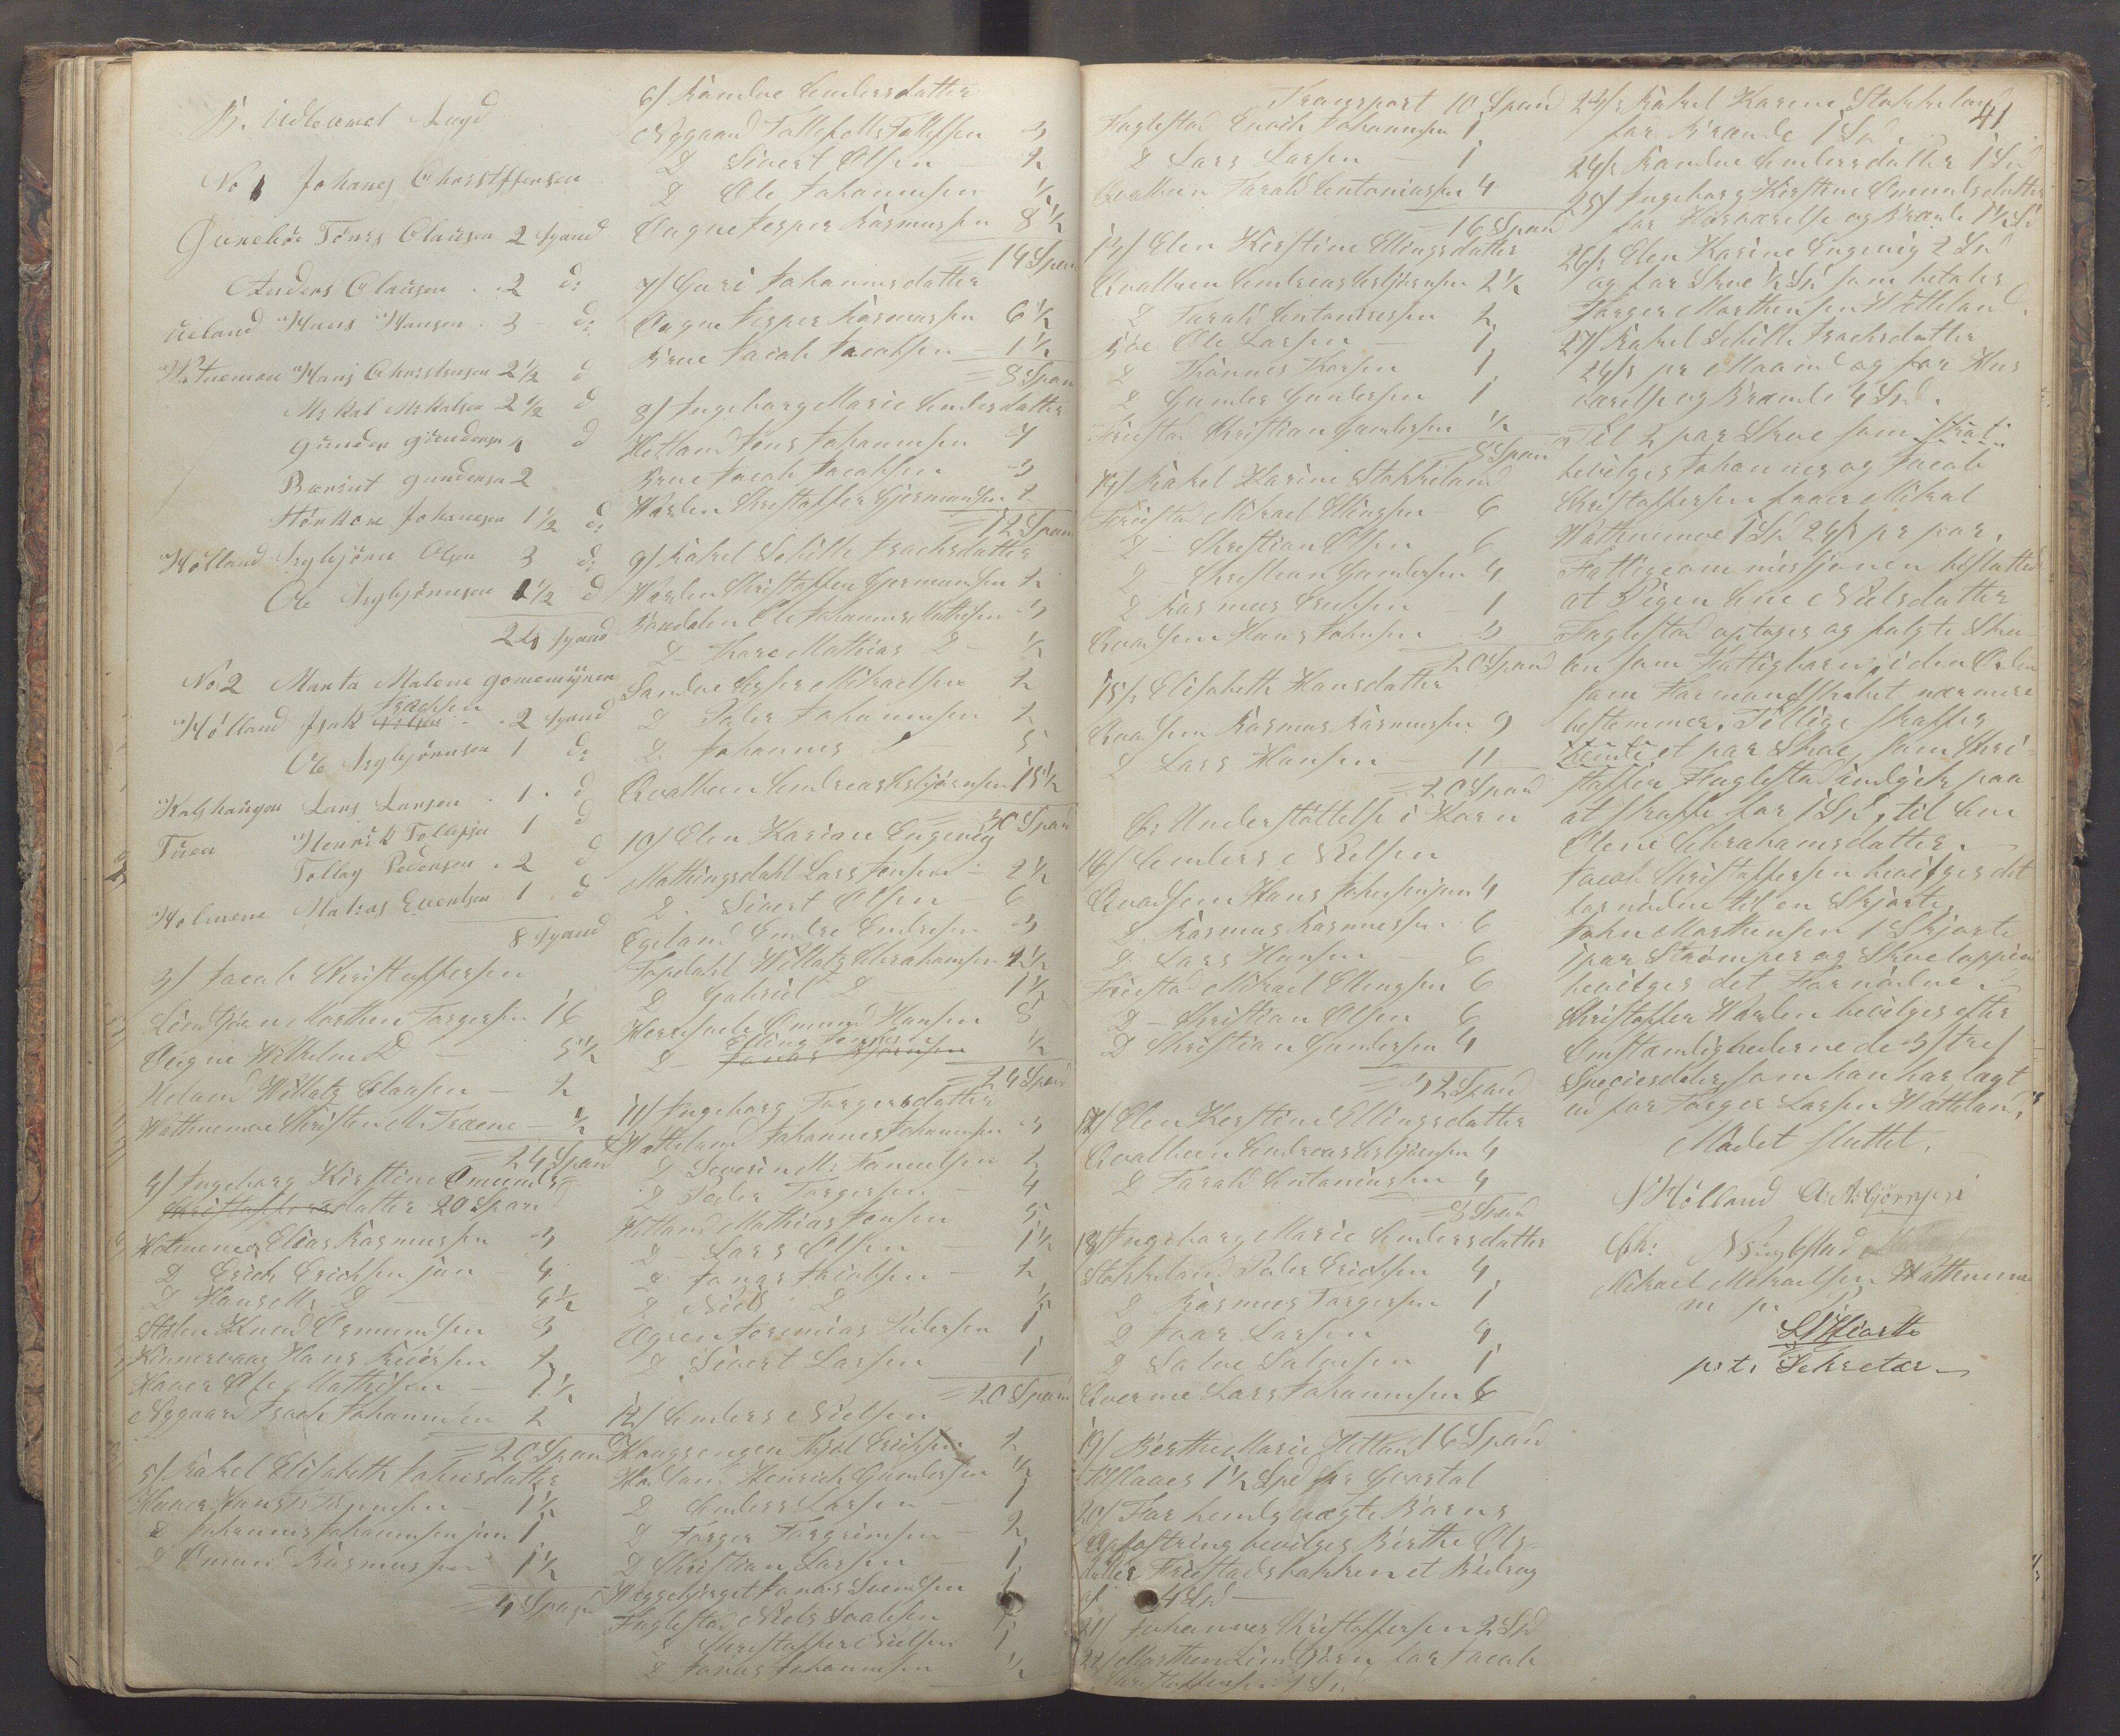 B. Udleveret Lægd
No 1 Johanes Christffersen
Tønes Clausen 2 spand
Anders Clausen . 2 do
Ueland Hans Hansen . 3 - do
Hans Christensen 2 1/2 d
Mikal Mikalsen 2 1/2 d
gunder gundersen 4 d
Bærint gundersen 2
Johanesen 1 1/2 do
Hölland Asgbjörn Olsen 3 do
Ole Asgbjörnsen 1 1/2 d
24 spand
No 2 Marta Malene
Isaksen
Hölland Isak . 2 spand
Ole Asgbjörnsen 1 do
Lars Larsen . 1 . d
Tuen Henrik Tollefsen 1 d
Tollag Pedersen . 2 d
Holmene Matias Evertsen 1 . d
8 spand
3/ Jacob Christoffersen
Morthen Torgersen 16
Øigne Wilhelm D — 5 1/2
Ueland Willatz Clausen — 2
Wathnemoe Christen M. Træene — 1/2
= 24 Span
4/ Ingeborg Kirstine Omunds-
datter 20 Span
Elias Rasmussen 3
D Erich Erichsen jun - 4
D Hans M. D — 4 1/2
Knud Osmundsen 3
Hans 2
Haaer Ole Mathisen — 1 1/2
Nygaard Isach Johannsen 2
= 20 Span
5/ Rakel Elisabeth Johnsdatter
Haaer Hans T. Tønnesen — 1 1/2
D Johannes Johannsen jun 1
D Omund Rasmussen 1 1/2
= 4 Spand
6/ Ramlve Andersdatter
Nygaard Tollef Tollefsen 3
D Sivert Olsen — 2
D Ole Johannsen 1/2
Øugne Jesper Rasmussen 8 1/2
= 14 Span
7/ Guri Johannsdatter
Øugne Jesper Rasmussen 6 1/2
Brue Jacob Jacobsen — 1 1/2
= 8 Span
8/ Ingeborg Marie Andersdatter
Hetland Jens Johannsen 7
Brue Jacob Jacobsen 3
Warden Christoffer Gjermundsen 2
= 12 Span
9/ Rakel Sehille Isachsdatter
Warden Christoffer Gjermundsen 2
Röisdalen Ole Johannes Mathisen 3
D Tore Mathias D — 1/2
Sandve Mikaelsen 2
D Peder Johannsen 2
D Johannes D 5
Qvalbeen Andreas Asbjörnsen 15 1/2
= 30 Span
10/ Elen Karine Engevig
Mathingsdahl Lars Jensen — 2 1/2
D. Sivert Olsen — 6
Egeland Endre Endresen 3
Fopdahl Willatz Abrahamsen 2 1/2
D Gabriel D — 1 1/2
Omund Hansen 8
Elling Jonsen
D — 1/2
= 24 Spand
11/ Ingeborg Torgersdatter
Watteland Johannes Johannsen 3
D Severin M. 2
D Peder Torgersen — 4
Hetland Mathias Jensen 5
D — Lars Olsen — 1 1/2
D Jonas Jacobsen — 2
D Niels D 1/2
Øgreen Jeremias Pedersen 1
D Sivert Larsen — 1
= 20 Spand
12/ Anders Nielsen
Haagsengen Thjöl Erichsen 2
Henrich Gundersen 1/2
D Anders Larsen — 1
D Torger Torgrimsen — 2
D Christian Larsen — 1
Jonas Svendsen 1
Fuglestad Niels 1
D Christoffer Nielsen 1
D Jonas Johannsen 1/2
41
Transport 10 Spand
Fuglestad Enoch Johannsen 1
D Lars Larsen — 1
Qvalbein Tarald Antoniussen 4
= 16 Span
13/ Elen Kirstine Ellingsdatter
Qvalbeen Andreas Asbjörnsen 2 1/2
D Tarald Antoniussen 2
Ole Larsen — 1
D Thönnes Thorsen 1
D Gunder Gundersen 1
Friestad Christian Gundersen 1/2
= 8 Span
14/ Rakel Karine Stokkeland
Friestad Mikael Ellingsen — 6
D — Christian Olsen 6
D — Christian Gundersen 4
D Rasmus Erichsen — 1
Qvassem Hans Johnsen 3
= 20 Spand
15/ Elisabeth Hansdatter
Qvassem Rasmus Rasmussen 9
D Lars Hansen — 11
= 20 Spand
C: Understöttelse i Korn
16/ Anders Nielsen
Qvassem Hans Johnsen jun 4
D. Rasmus Rasmussen 6
D. Lars Hansen — 6
Friestad Mikael Ellingsen 6
D — Christian Olsen 6
D Christian Gundersen 4
= 32 Spand
17/ Elen Kirstine Ellingsdatter
Qvalbeen Andreas Asbjörnsen 4
D Tarald Antoniussen 4
= 8 Spand
18/ Ingeborg Marie Andersdatter
Stokkeland Peder Erichsen 4
D Rasmus Torgersen 1
D Ivar Larsen 4
D Salve Salvesen 1
Qverme Lars Johannsen 6
19/ Berthe Marie Hetland 16 Spand
tillstaaes 1 1/2 Spd pr Qvartal
20/ For hendes uægte Barns
Opfostring bevilges Birthe Ols-
datter Friestadsbakken et Bidrag
af 4 Spd —
21/ Johannes Christoffersen 2 Spd
22/ Morthen for Jacob
Christoffersen 1 Sp
23/ Rakel Karine Stokkeland
for Brænde 1 Spd.
24/ Ramlve Andersdatter 1 Spd
25/ Ingeborg Kirstine Omundsdatter
for Huusværelse og Brænde 1 1/2 Sp
26/ Elen Karine Engevig 2 Spd
og for Skoe 1/2 Sp som betales
Torger Morthensen Watteland.
27/ Rakel Sehille Isachsdatter
24 s pr Maaned og for Hus
værelse og Brænde 4 Spd.
Til 2 par Skoe som
bevilges Johannes og Jacob
Christoffersen faaer Mikal
Wathnemoe 1 Sp 24 s pr par.
Fattigcommissjonen besluttede
at Pigen Ane Nielsdatter
Fuglestad optages og fulgte Sko-
len som Fattigbarn, i den Orden
som Formandskabet nærmere
bestemmer. Tillige skaffes
et par Skoe, som Chri-
stoffer Fuglestad indgik paa
at skaffe for 1 Sp, til Ane
Olene Abrahamsdatter.
Jacob Christoffersen bevilges det
fornödne til en Skjorte,
John Morthensen 1 Skjorte
1 par Strömper og Skoelapper
bevilges det Fornödne.
Christoffer Warden bevilges efter
Omstændighederne de 3 tre/
Speciesdaler, som han har lagt
ud for Torger Larsen Watteland.
Mødet sluttet.
Hölland A. Asbjörnsen
Ch: Fuglestad
Mikael Mikaelsen Wathnemoe
m p
p. t. Sekretær